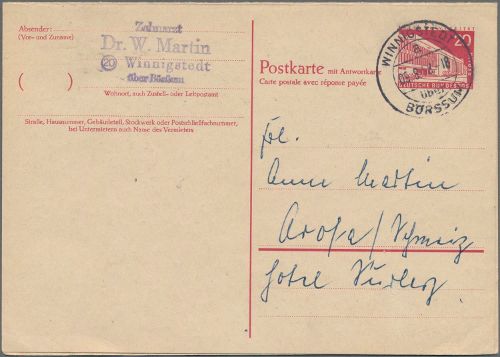 Absender:
(Vor- und Zuname)
Zahnarzt
Dr. W. Martin
(20) Winnigstedt
über Börßum
( )
Wohnort, auch Zustell- oder Leitpostamt
Straße, Hausnummer, Gebäudeteil, Stockwerk oder Postschließfachnummer,
bei Untermietern auch Name des Vermieters
Postkarte mit Antwortkarte
Carte postale avec réponse payée
WINNIGSTEDT
über
BÖRSSUM
20
DEUTSCHE BUNDESPOST
Frl.
Anne Martin
Arosa/Schweiz
Hotel